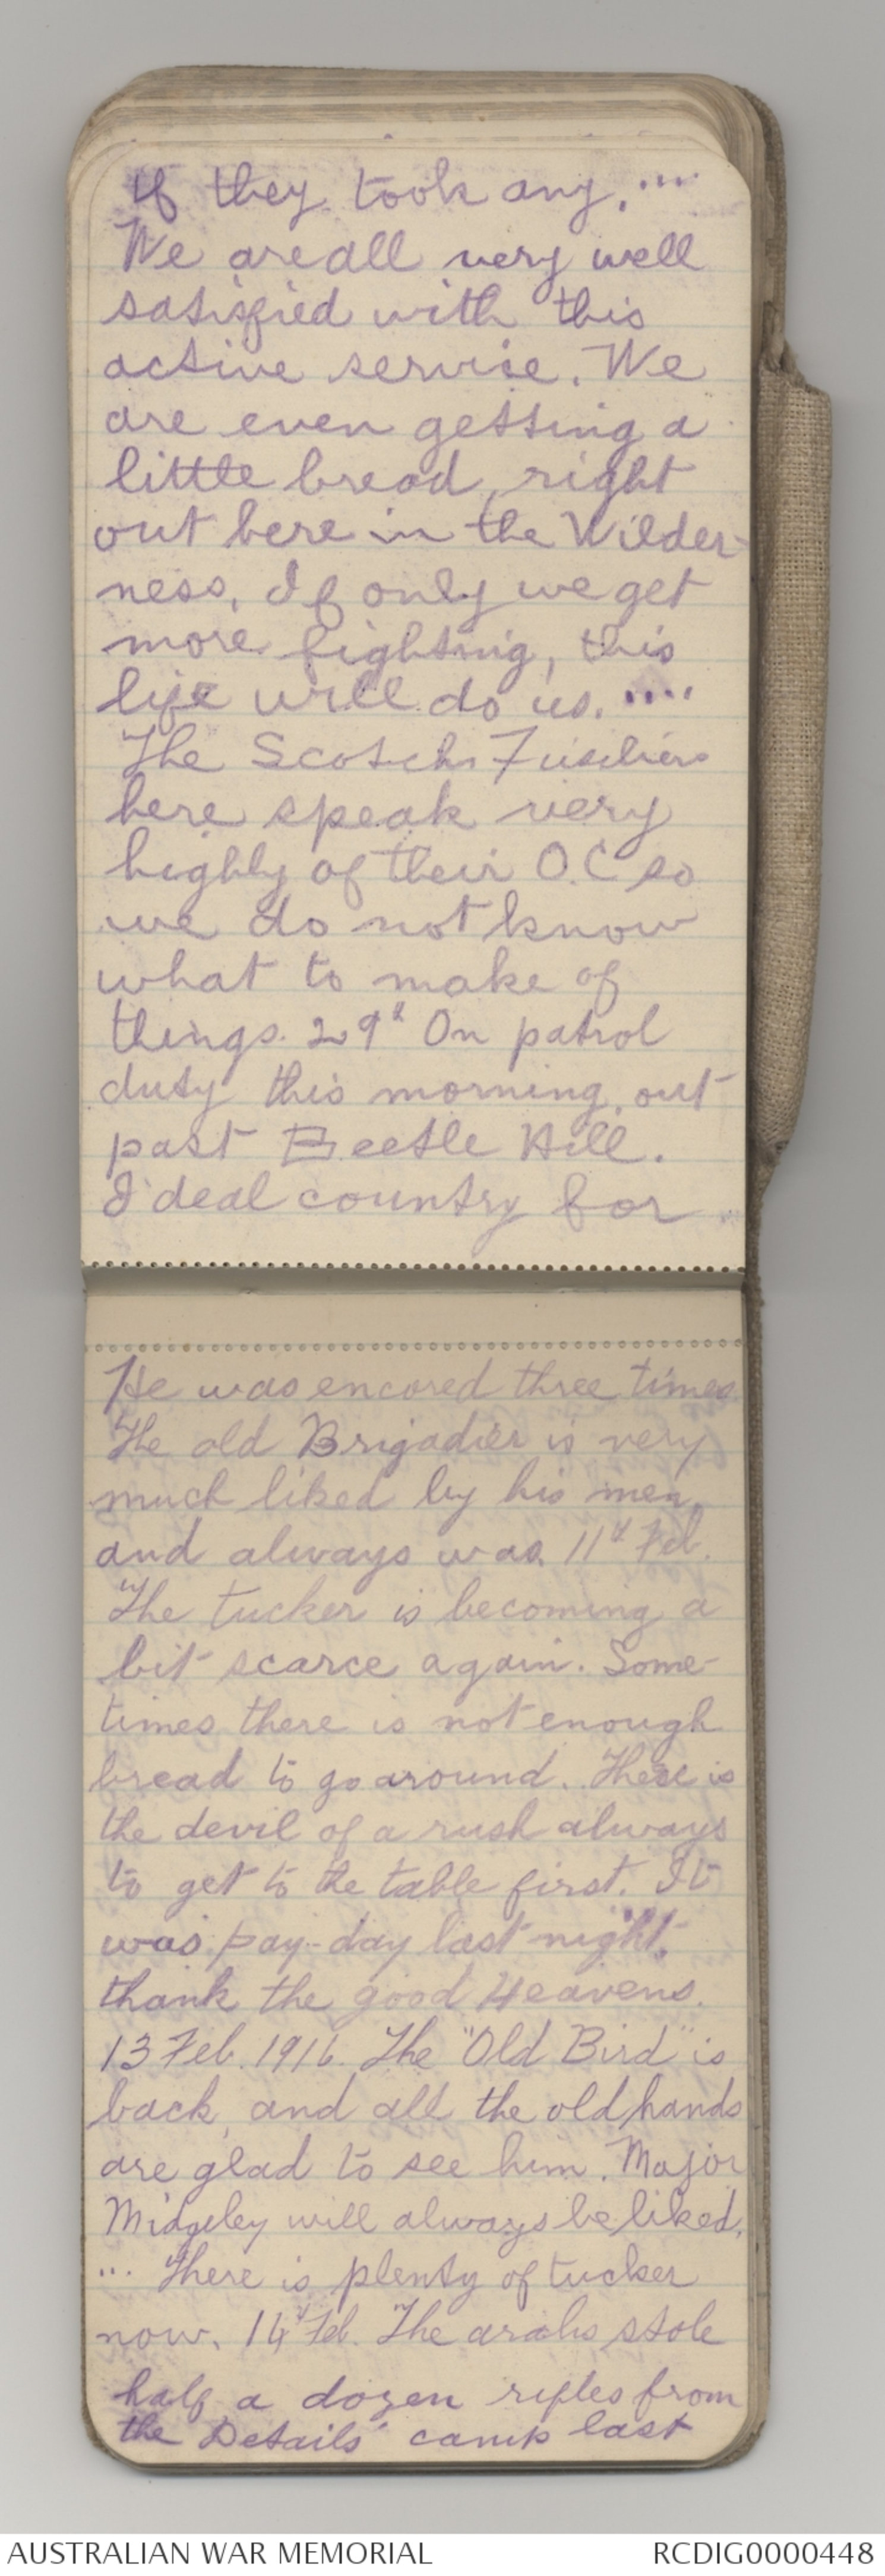 if they took any. ....
We are all very well
satisfied with this
active servise. We
are even getting a
little bread, right
out here in the Wilder-
ness. If only we get
more fighting, this
life will do us. ....
The Scotch Fusiliers
here speak very
highly of their O.C so
we do not know
what to make of
things. 29th On patrol
duty this morning, out
past Beetle Hill.
Ideal country for
He was encored three times.
The old Brigadier is very
much liked by his men,
and always was. 11th Feb.
The tucker is becoming a
bit scarce again. Some-
times there is not enough
bread to go around. There is
the devil of a rush always
to get to the table first. It
was pay-day last night,
thank the good Heavens.
13 Feb. 1916. The "Old Bird" is
back, and all the old hands
are glad to see him. Major
Midgeley will always be liked.
... There is plenty of tucker
now. 14th Feb. The arabs stole
half a dozen rifles from
the Details' camp last
AUSTRALIAN WAR MEMORIAL
RCDIG0000448